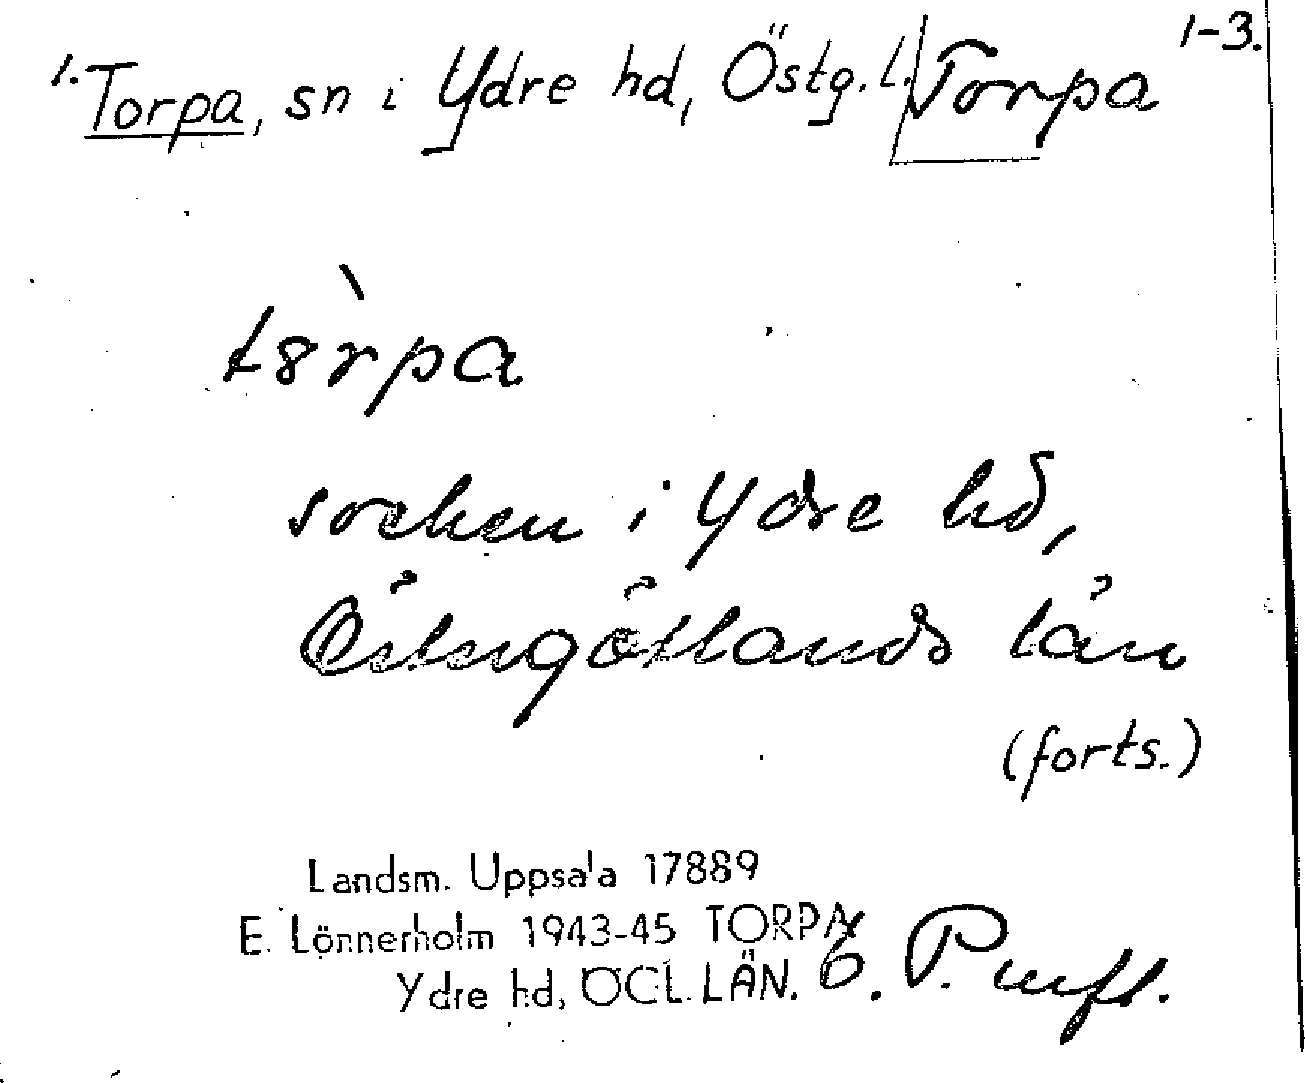 1. Torpa, sn i Ydre hd, Östg. l. Torpa 1-3.
t8̀rpa
socken i Ydre hd,
Östergötlands län
(forts.)
Landsm. Uppsala 17889
E. Lönnerholm 1943-45 TORPA
Ydre hd, ÖGL. LÄN. 6. P.